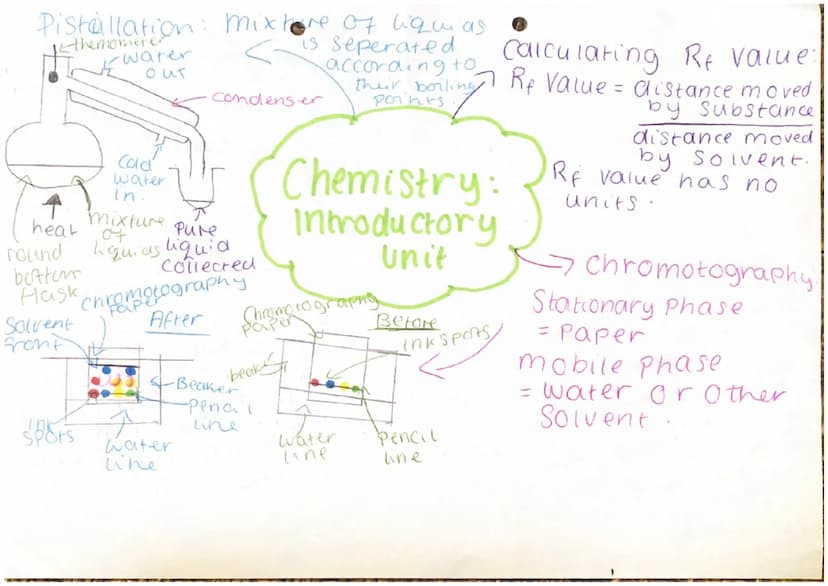 Distallation: mixture of liquids
is seperated
according to
their boiling
points.
thermometer
water
out
condenser
cold
water
in.
heat
mixture
of
liquids
round
bottom
flask
Pure
liquid
collected
Calculating Rf value:
Rf value = distance moved
by substance
distance moved
by solvent.
Rf value has no
units.
Chemistry:
Introductory
unit
Chromotography.
Stationary phase
= paper
mobile phase
= water or other
solvent.
Chromotography
paper
After
Solvent
front
Beaker
pencil
line
ink
spots
water
line
Chromotography
paper
Before
ink spots
beaker
water
line
pencil
line